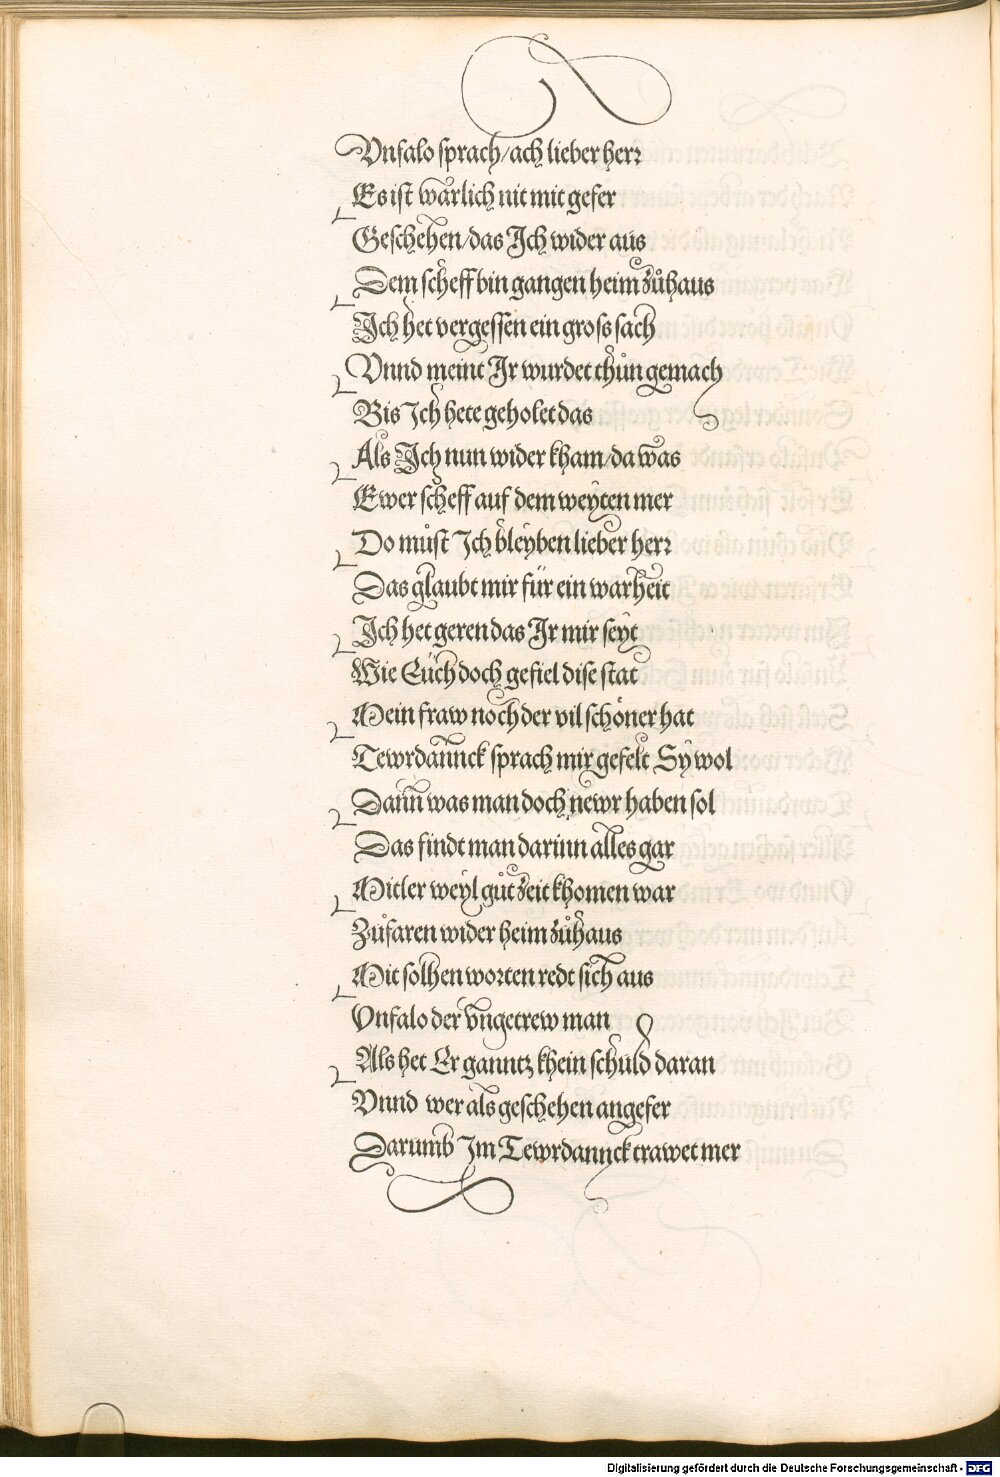 Vnfalo sprach/ach lieber herr
Es ist warlich nit mit gefer
Geschehen/das Ich wider aus
Dem scheff bin gangen heim zůhaus
Ich het vergessen ein gross sach
Vnnd meint Ir wurdet thůn gemach
Bis Ich hete geholet das
Als Ich nun wider kham/da was
Ewer scheff auf dem weyten mer
Do můst Ich bleyben lieber herr
Das glaubt mir für ein warheit
Ich het geren das Ir mir seyt
Wie Euch doch gefiel dise stat
Mein fraw noch der vil schöner hat
Tewrdannck sprach mir gefelt Sy wol
Dann was man doch newr haben sol
Das findt man darinn alles gar
Mitler weyl gůt zeit khomen war
Zůfaren wider heim zůhaus
Mit solhen worten redt sich aus
Vnfalo der vngetrew man
Als het Er ganntz khein schuld daran
Vnnd wer als geschehen angefer
Darumb Im Tewrdannck trawet mer
Digitalisierung gefördert durch die Deutsche Forschungsgemeinschaft - DFG